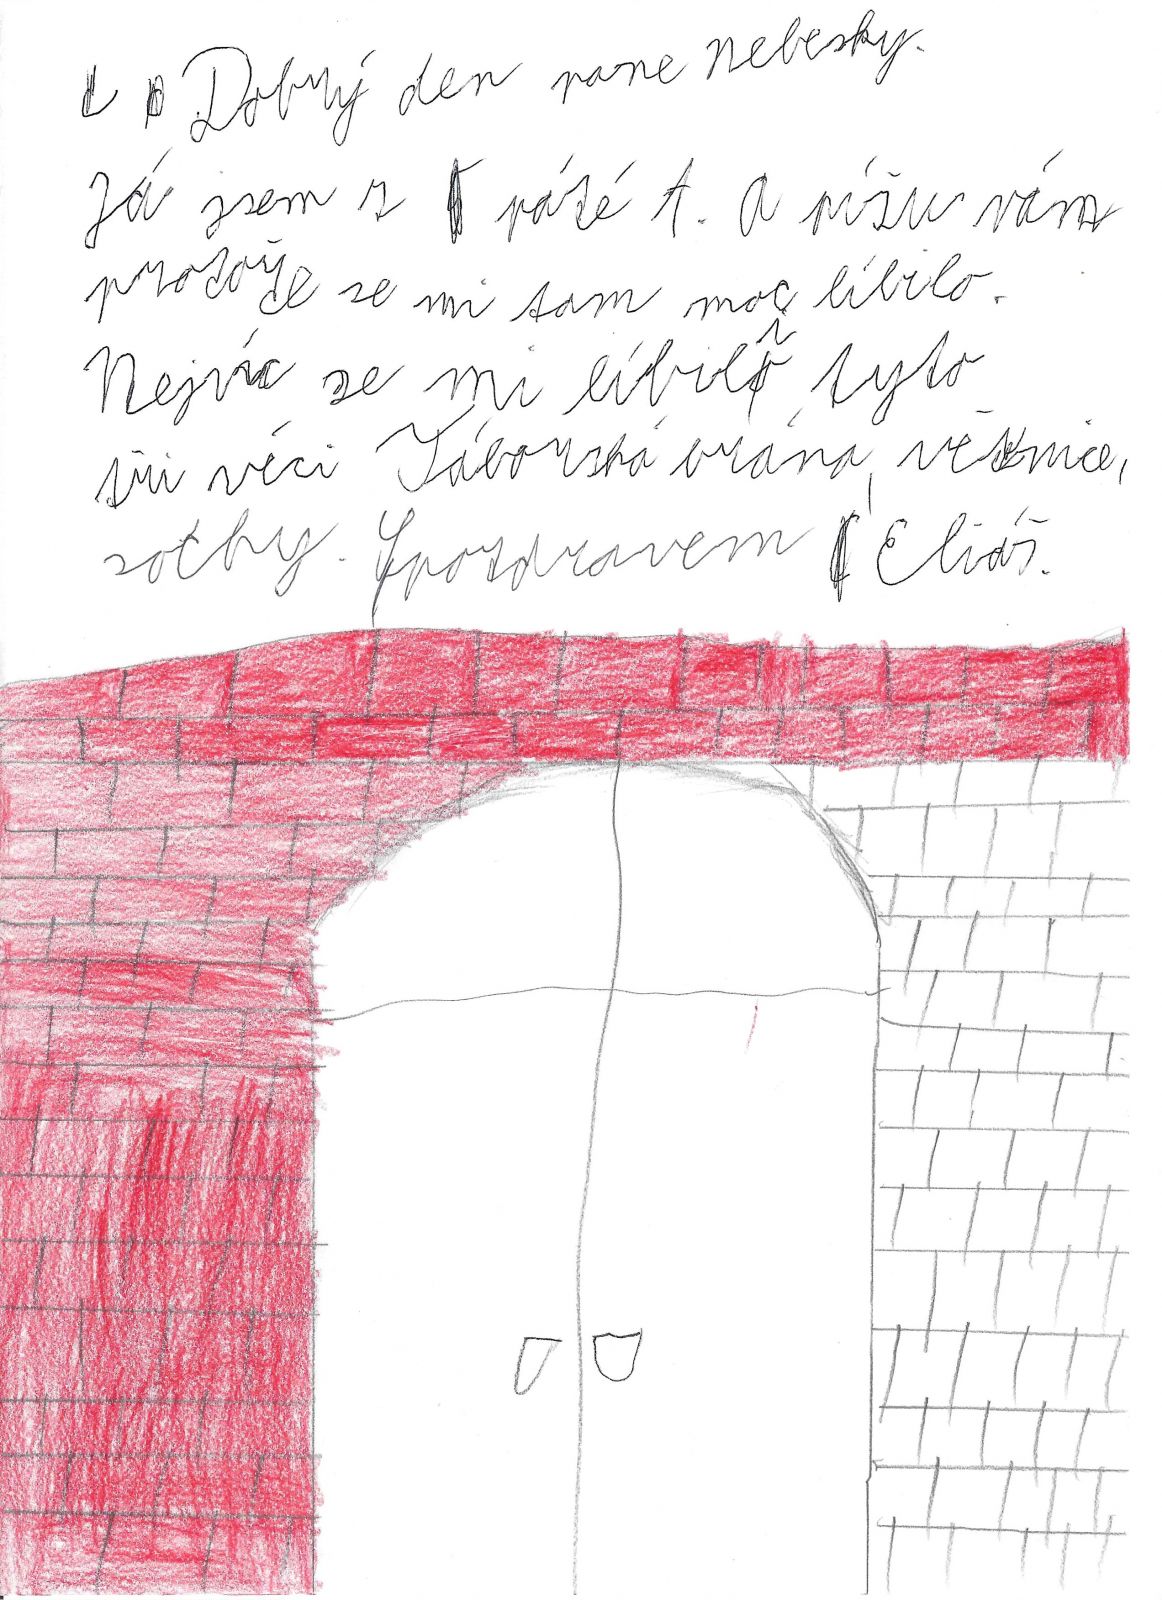 Dobrý den pane Nebesky.
Já jsem z páté A. A píšu vám
protože se mi tam moc líbilo.
Nejvíc se mi líbily tyto
tři věci Táborská brána, věznice,
sochy. S pozdravem Eliáš.